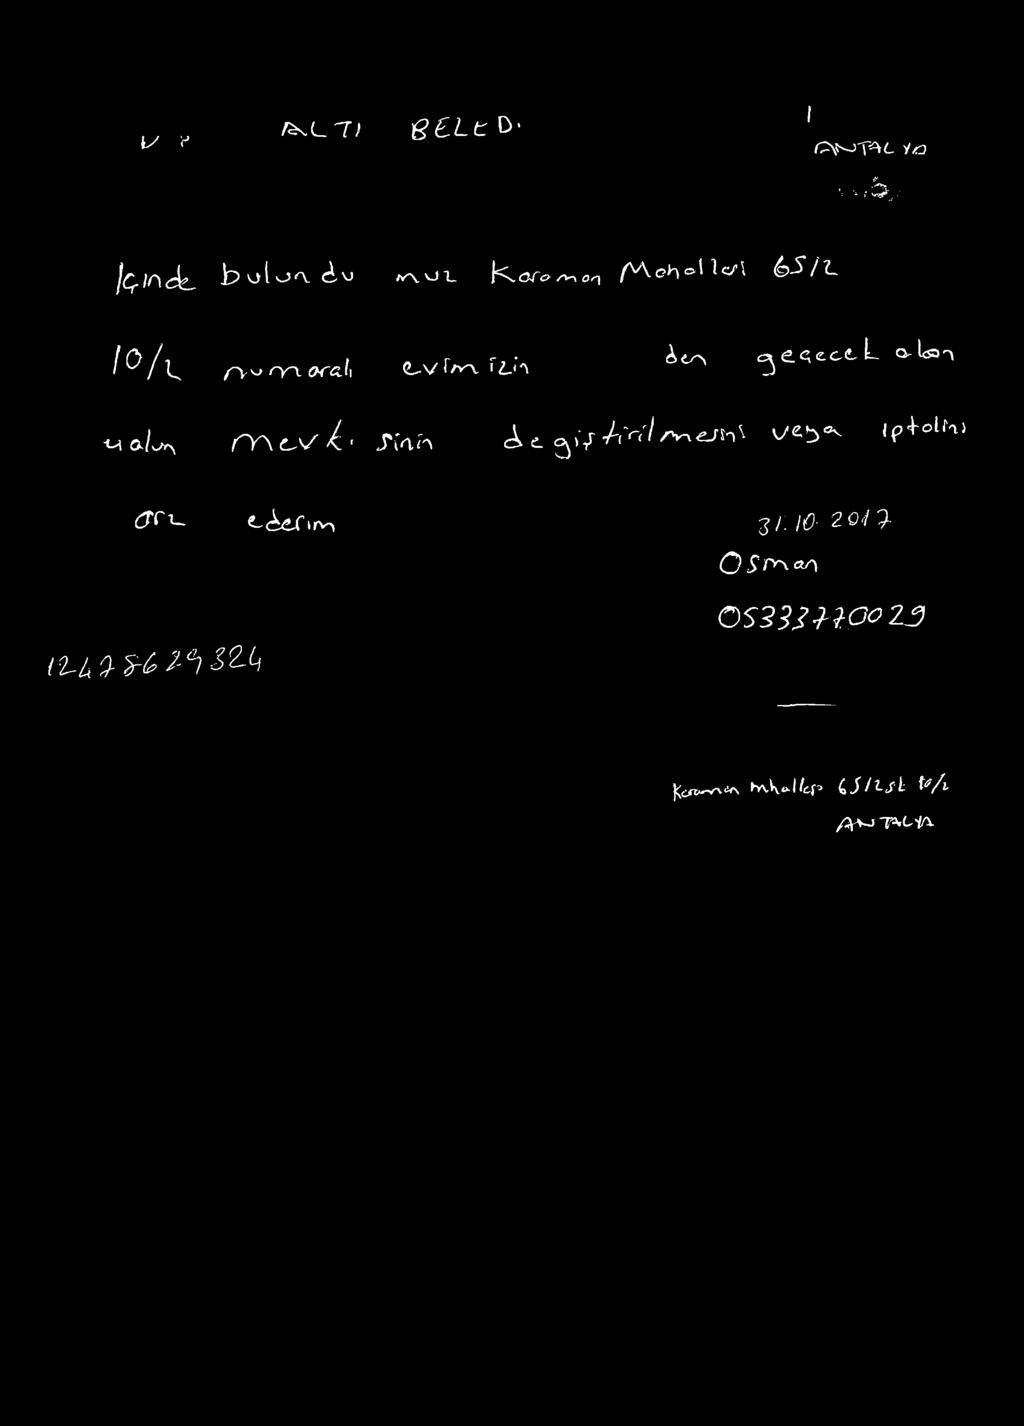 ALTI BELED.
ANTALYA
İçinde bulundu muz Karaman Mahallesi 6512
10/2 numaralı evimizin den geçecek alan
yalun mevki sinin değiştirilmesini veya iptalini
arz ederim
31.10.2017
Osman
05333770029
12478629324
Karaman mhallesi 6512 sk 10/2
ANTALYA